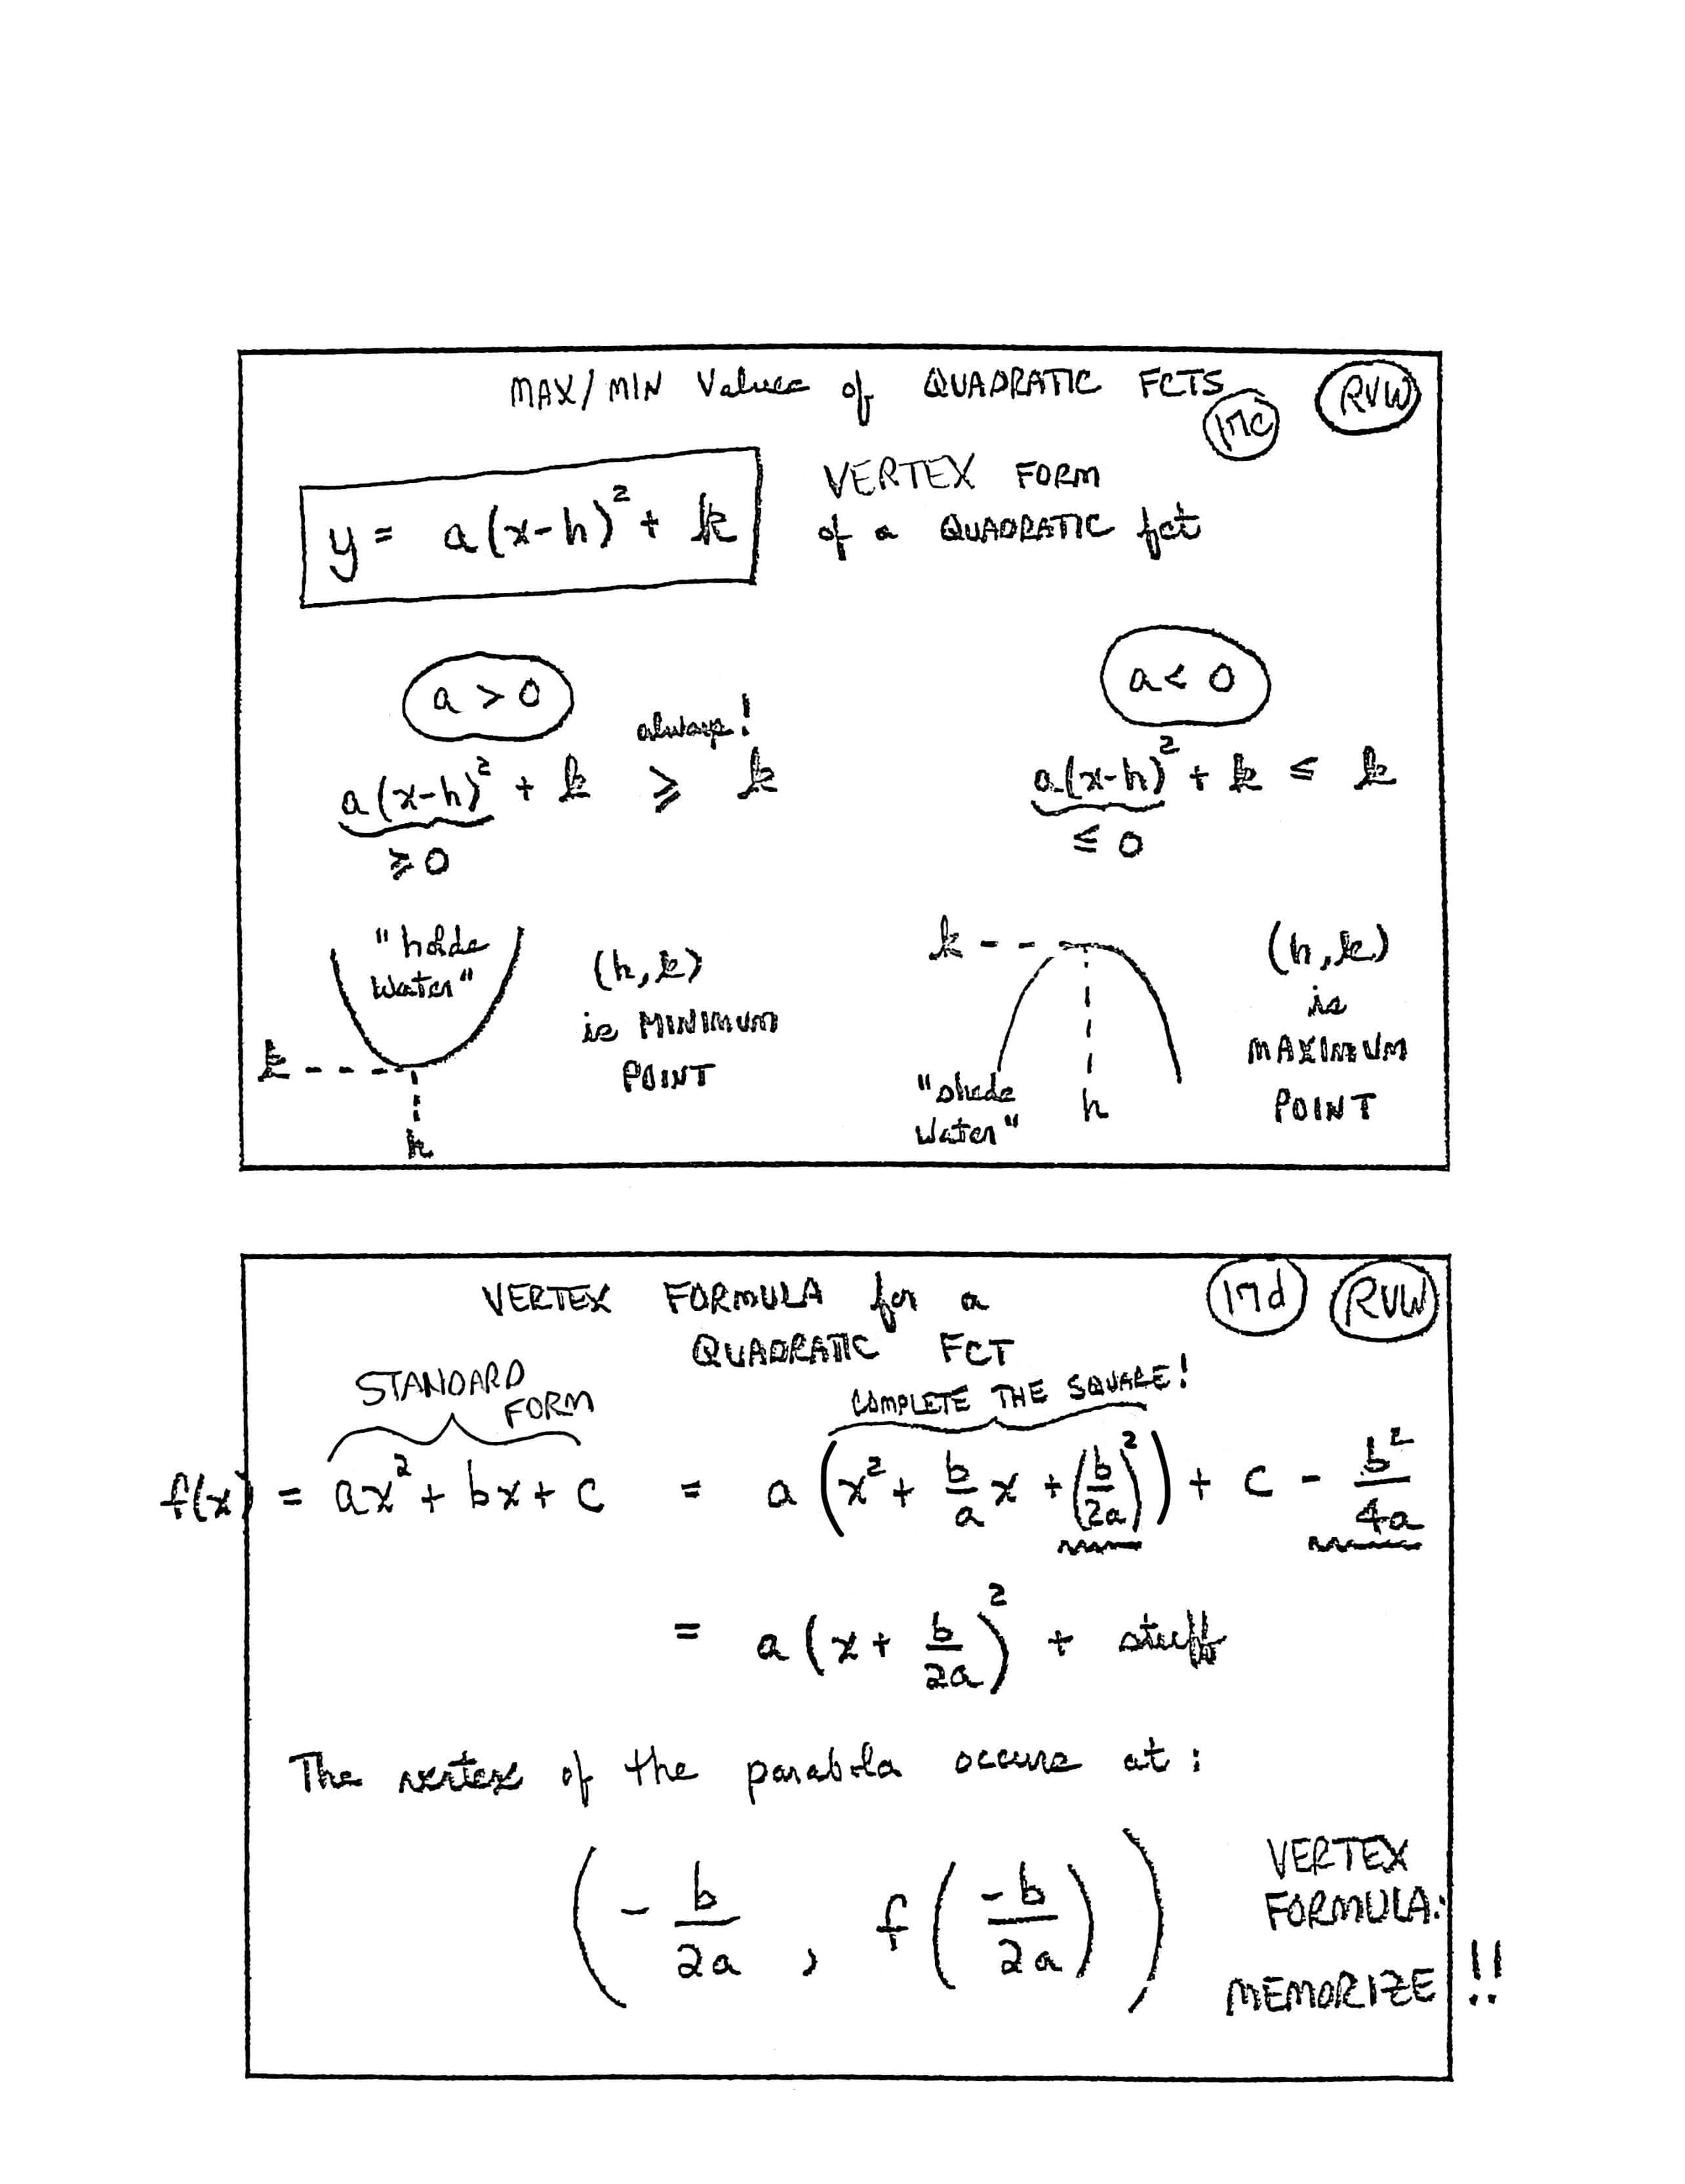 MAX/MIN Values of QUADRATIC FCTS
17c
RVW
y = a(x-h)² + k
VERTEX FORM
of a QUADRATIC fct
a > 0
always!
a(x-h)² + k ≥ k
≥ 0
a < 0
a(x-h)² + k ≤ k
≤ 0
"holds
water"
k
h
(h,k)
is MINIMUM
POINT
k
h
"sheds
water"
(h,k)
is
MAXIMUM
POINT
VERTEX FORMULA for a
QUADRATIC FCT
17d
RVW
STANDARD
FORM
COMPLETE THE SQUARE!
f(x) = ax² + bx + c = a(x² + b/a x + (b/2a)²) + c - b²/4a
= a(x + b/2a)² + stuff
The vertex of the parabola occurs at:
(-b/2a, f(-b/2a))
VERTEX
FORMULA:
MEMORIZE!!